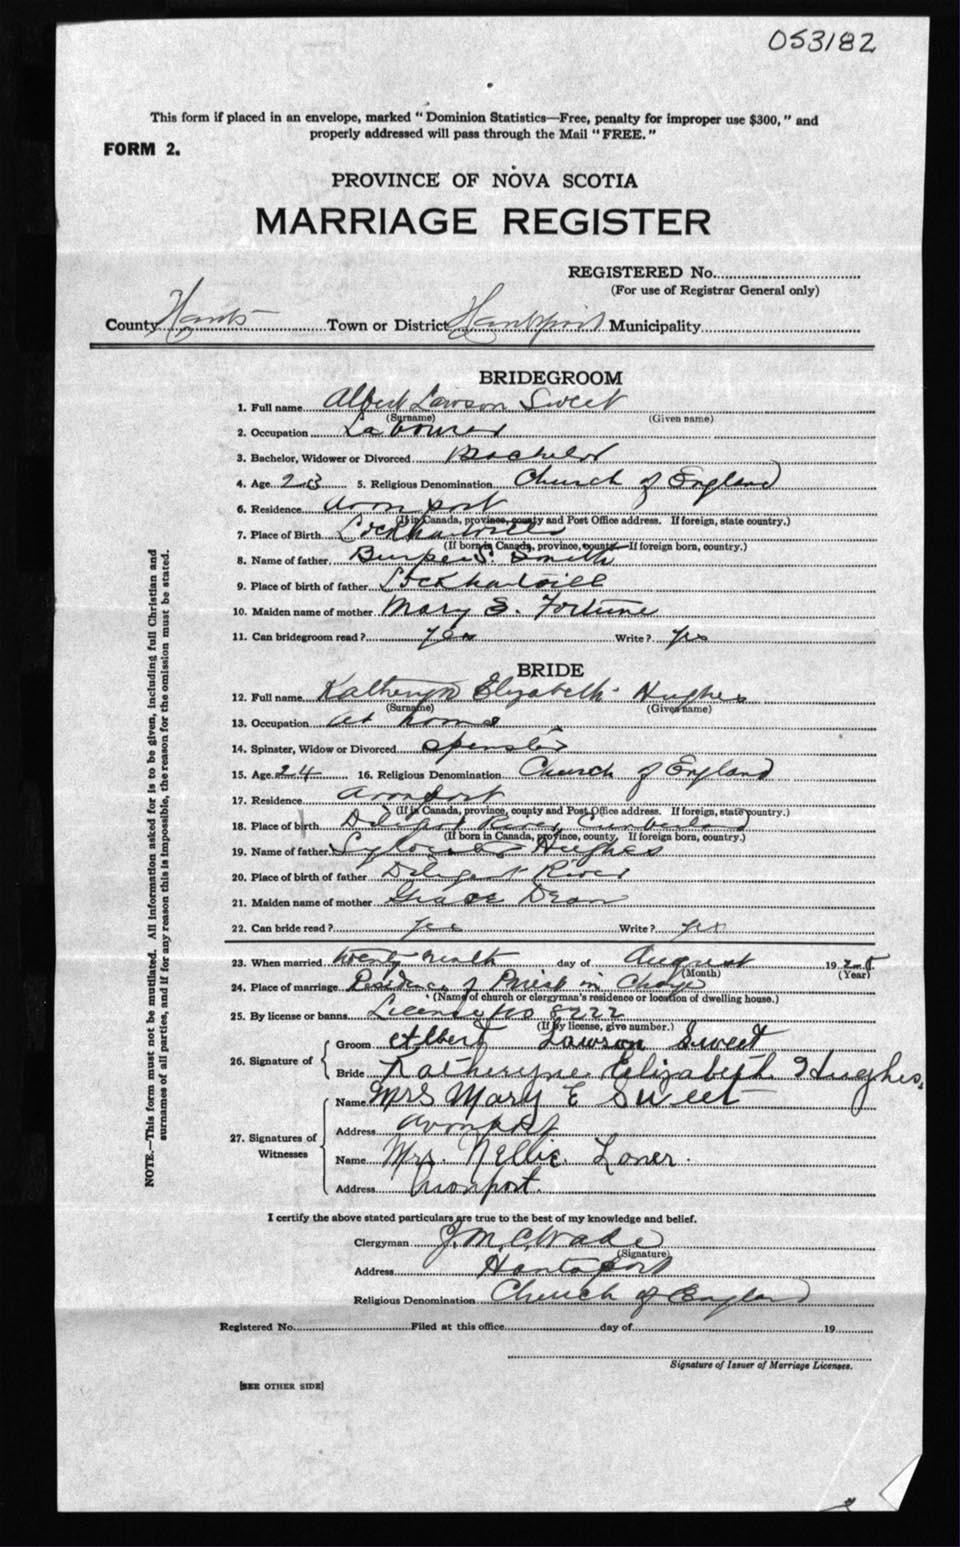 053182
This form if placed in an envelope, marked "Dominion Statistics—Free, penalty for improper use $300," and
properly addressed will pass through the Mail "FREE."
FORM 2.
PROVINCE OF NOVA SCOTIA
MARRIAGE REGISTER
REGISTERED No.
(For use of Registrar General only)
County Hants Town or District Hantsport Municipality
BRIDEGROOM
1. Full name Albert Lawson Sweet
(Surname) (Given name)
2. Occupation Labourer
3. Bachelor, Widower or Divorced Bachelor
4. Age 23 5. Religious Denomination Church of England
6. Residence Avonport
(If in Canada, province, county and Post Office address. If foreign, state country.)
7. Place of Birth Lockhartville
(If born in Canada, province, county. If foreign born, country.)
8. Name of father Burpee S. Smith
9. Place of birth of father Lockhartville
10. Maiden name of mother Mary E. Fortune
11. Can bridegroom read? Yes Write? Yes
BRIDE
12. Full name Katheryn Elizabeth Hughes
(Surname) (Given name)
13. Occupation at home
14. Spinster, Widow or Divorced Spinster
15. Age 24 16. Religious Denomination Church of England
17. Residence Avonport
(If in Canada, province, county and Post Office address. If foreign, state country.)
18. Place of birth Diligent River Cumberland
(If born in Canada, province, county. If foreign born, country.)
19. Name of father Hughes
20. Place of birth of father Diligent River
21. Maiden name of mother Grace Dean
22. Can bride read? Yes Write? Yes
23. When married day of August 192
(Month) (Year)
24. Place of marriage Residence of Priest in Charge
(Name of church or clergyman's residence or location of dwelling house.)
25. By license or banns License no 8222
(If by license, give number.)
26. Signature of
Groom Albert Lawson Sweet
Bride Katheryne Elizabeth Hughes.
27. Signatures of Witnesses
Name Mrs Mary E Sweet
Address Avonport
Name Mrs. Nellie
Address Avonport.
I certify the above stated particulars are true to the best of my knowledge and belief.
Clergyman J. M. C. Wade
(Signature)
Address Hantsport
Religious Denomination Church of England
Registered No. Filed at this office day of 19
Signature of Issuer of Marriage Licenses.
[SEE OTHER SIDE]
NOTE.—This form must not be mutilated. All information asked for is to be given, including full Christian and
surnames of all parties, and if for any reason this is impossible, the reason for the omission must be stated.